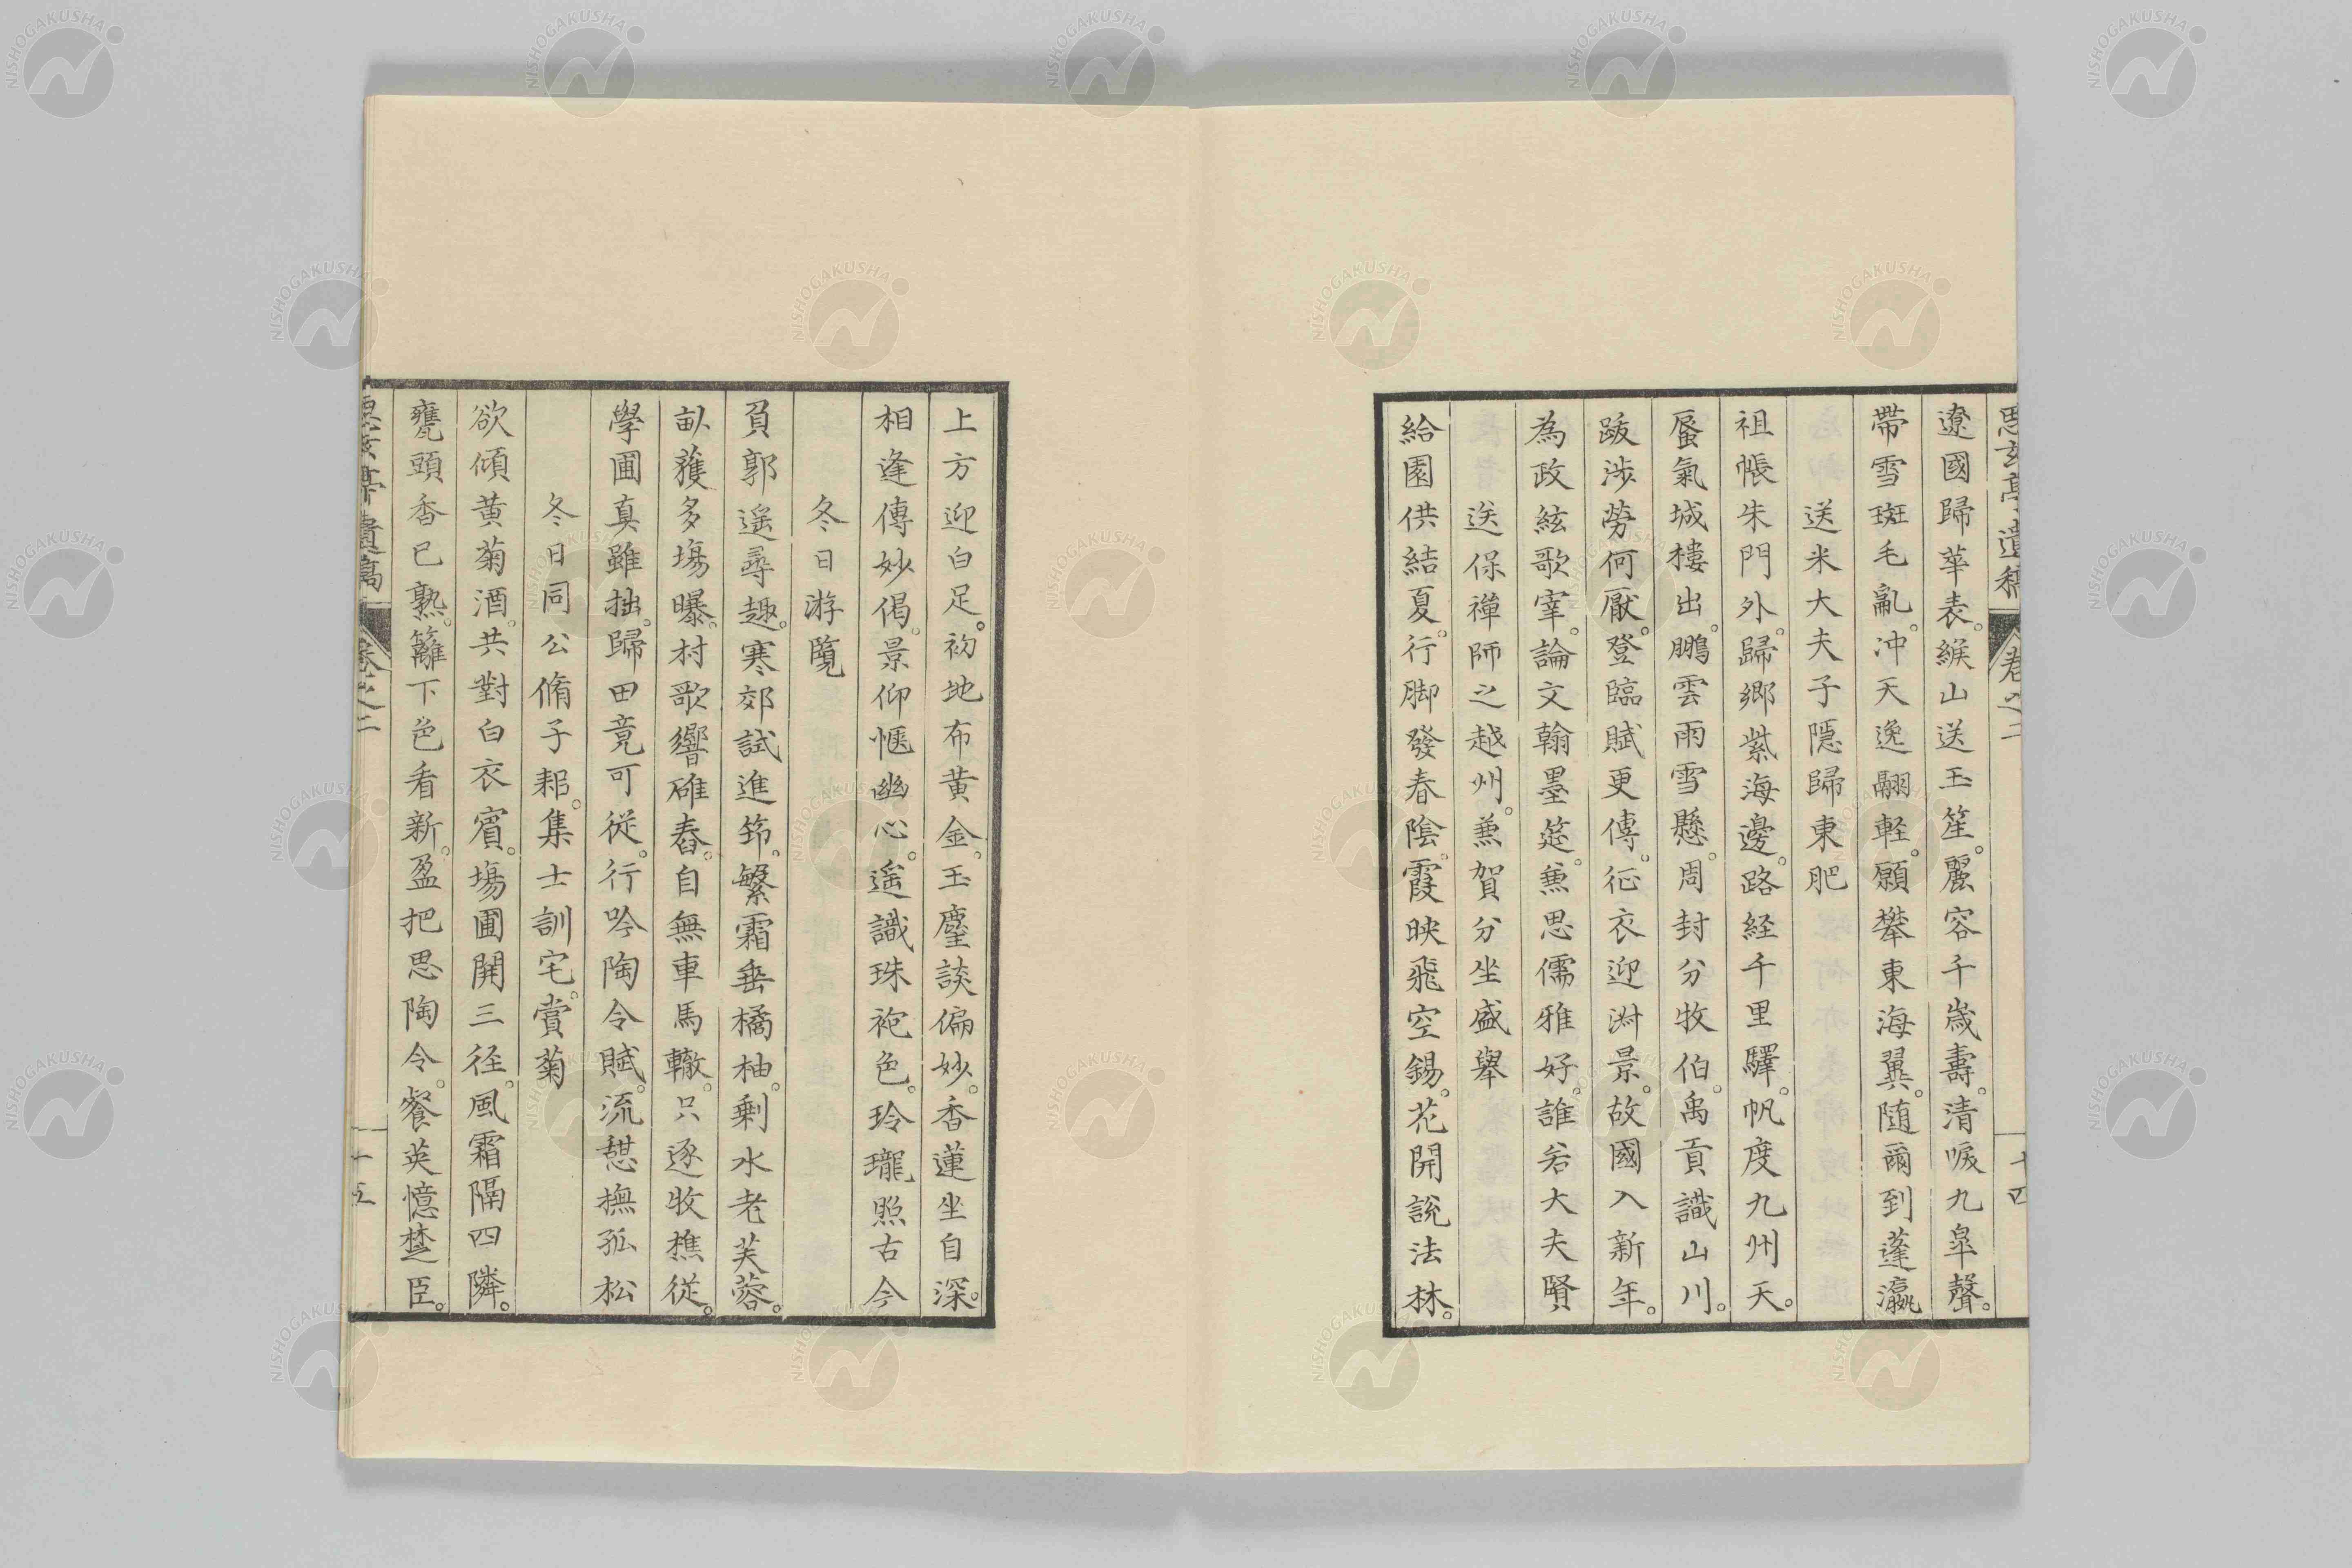 思玄亭遺稿 卷之二 十四
遼國歸華表。緱山送玉笙。麗容千歳壽。清唳九皐聲。
帶雪斑毛亂。冲天逸翮軽。願攀東海翼。随爾到蓬瀛
送米大夫子隱歸東肥
祖帳朱門外。歸郷紫海邊。路経千里驛。帆度九州天。
蜃氣城樓出。鵬雲雨雪懸。周封分牧伯。禹貢識山川。
跋渉勞何厭。登臨賦更傳。征衣迎淑景。故國入新年。
為政絃歌宰。論文翰墨筵。兼思儒雅好。誰若大夫賢
送保禪師之越州。兼賀分坐盛舉
給園供結夏。行脚發春陰。霞映飛空錫。花開說法林。
上方迎白足。初地布黄金。玉麈談偏妙。香蓮坐自深。
相逢傳妙偈。景仰愜幽心。遥識珠袍色。玲瓏照古今
冬日游覽
負郭遥尋趣。寒郊試進筇。繁霜垂橘柚。剰水老芙蓉。
畝穫多場曝。村歌響碓舂。自無車馬轍。只逐牧樵從。
學圃真雖拙。歸田竟可從。行吟陶令賦。流憩撫孤松
冬日同公脩子耜。集士訓宅。賞菊
欲傾黄菊酒。共對白衣賓。場圃開三径。風霜隔四隣。
甕頭香已熟。籬下色看新。盈把思陶令。餐英憶楚臣。
卷之二 十五
NISHOGAKUSHA